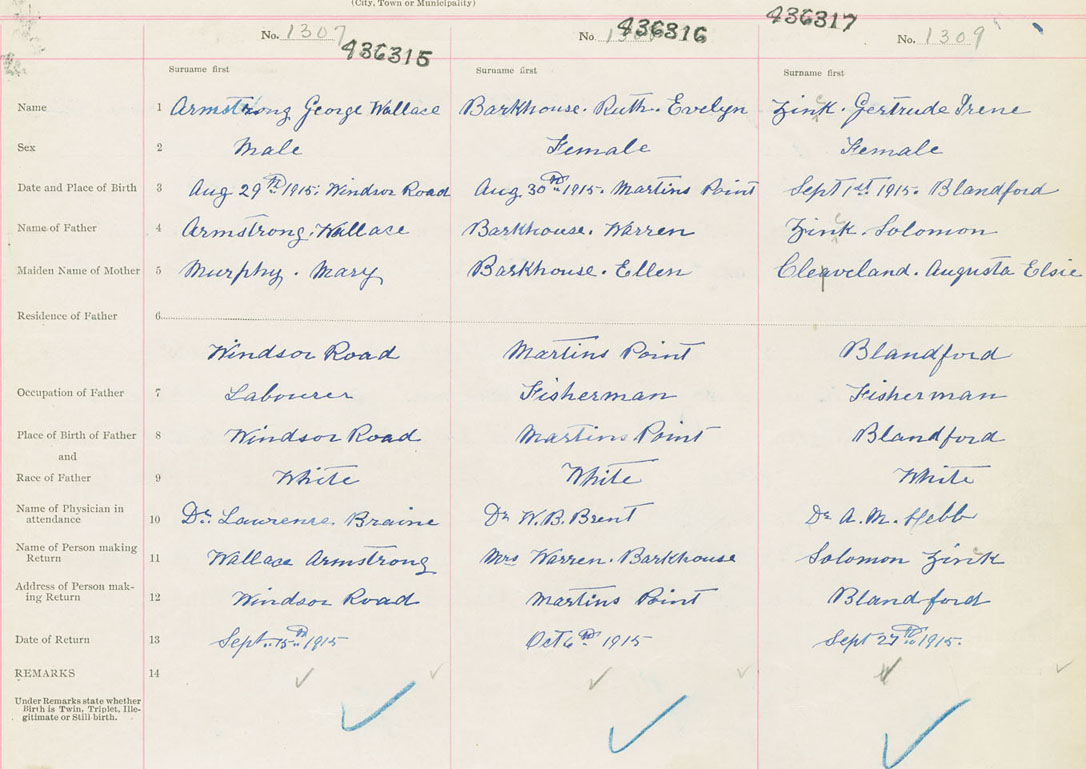 (City, Town or Municipality)
No. 1307 436315 No. 436316 436317 No. 1309
Surname first Surname first Surname first
Name 1 Armstrong George Wallace Barkhouse. Ruth. Evelyn Zink. Gertrude Irene
Sex 2 Male Female Female
Date and Place of Birth 3 Aug 29th 1915. Windsor Road Aug 30th 1915. Martins Point Sept 1st 1915. Blandford
Name of Father 4 Armstrong. Wallace Barkhouse. Warren Zink. Solomon
Maiden Name of Mother 5 Murphy. Mary Barkhouse. Ellen Cleaveland. Augusta Elsie
Residence of Father 6
Windsor Road Martins Point Blandford
Occupation of Father 7 Labourer Fisherman Fisherman
Place of Birth of Father 8 Windsor Road Martins Point Blandford
and
Race of Father 9 White White White
Name of Physician in
attendance 10 Dr. Lawrence. Braine Dr W. B. Brent Dr A. M. Hebb
Name of Person making
Return 11 Wallace Armstrong Mrs Warren. Barkhouse Solomon Zink
Address of Person mak-
ing Return 12 Windsor Road Martins Point Blandford
Date of Return 13 Sept. 15th 1915 Oct 6th 1915 Sept 27th 1915.
REMARKS 14
Under Remarks state whether
Birth is Twin, Triplet, Ille-
gitimate or Still birth.